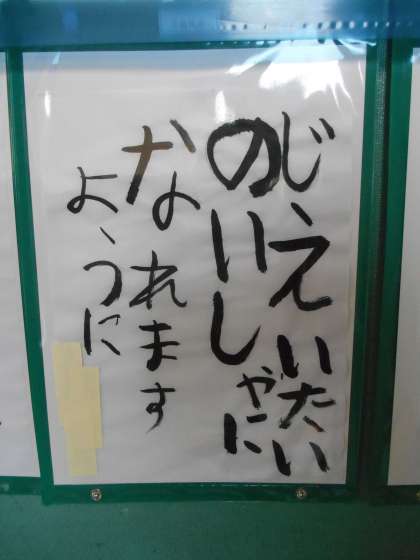 じえいたい
のいしゃに
なれます
ように